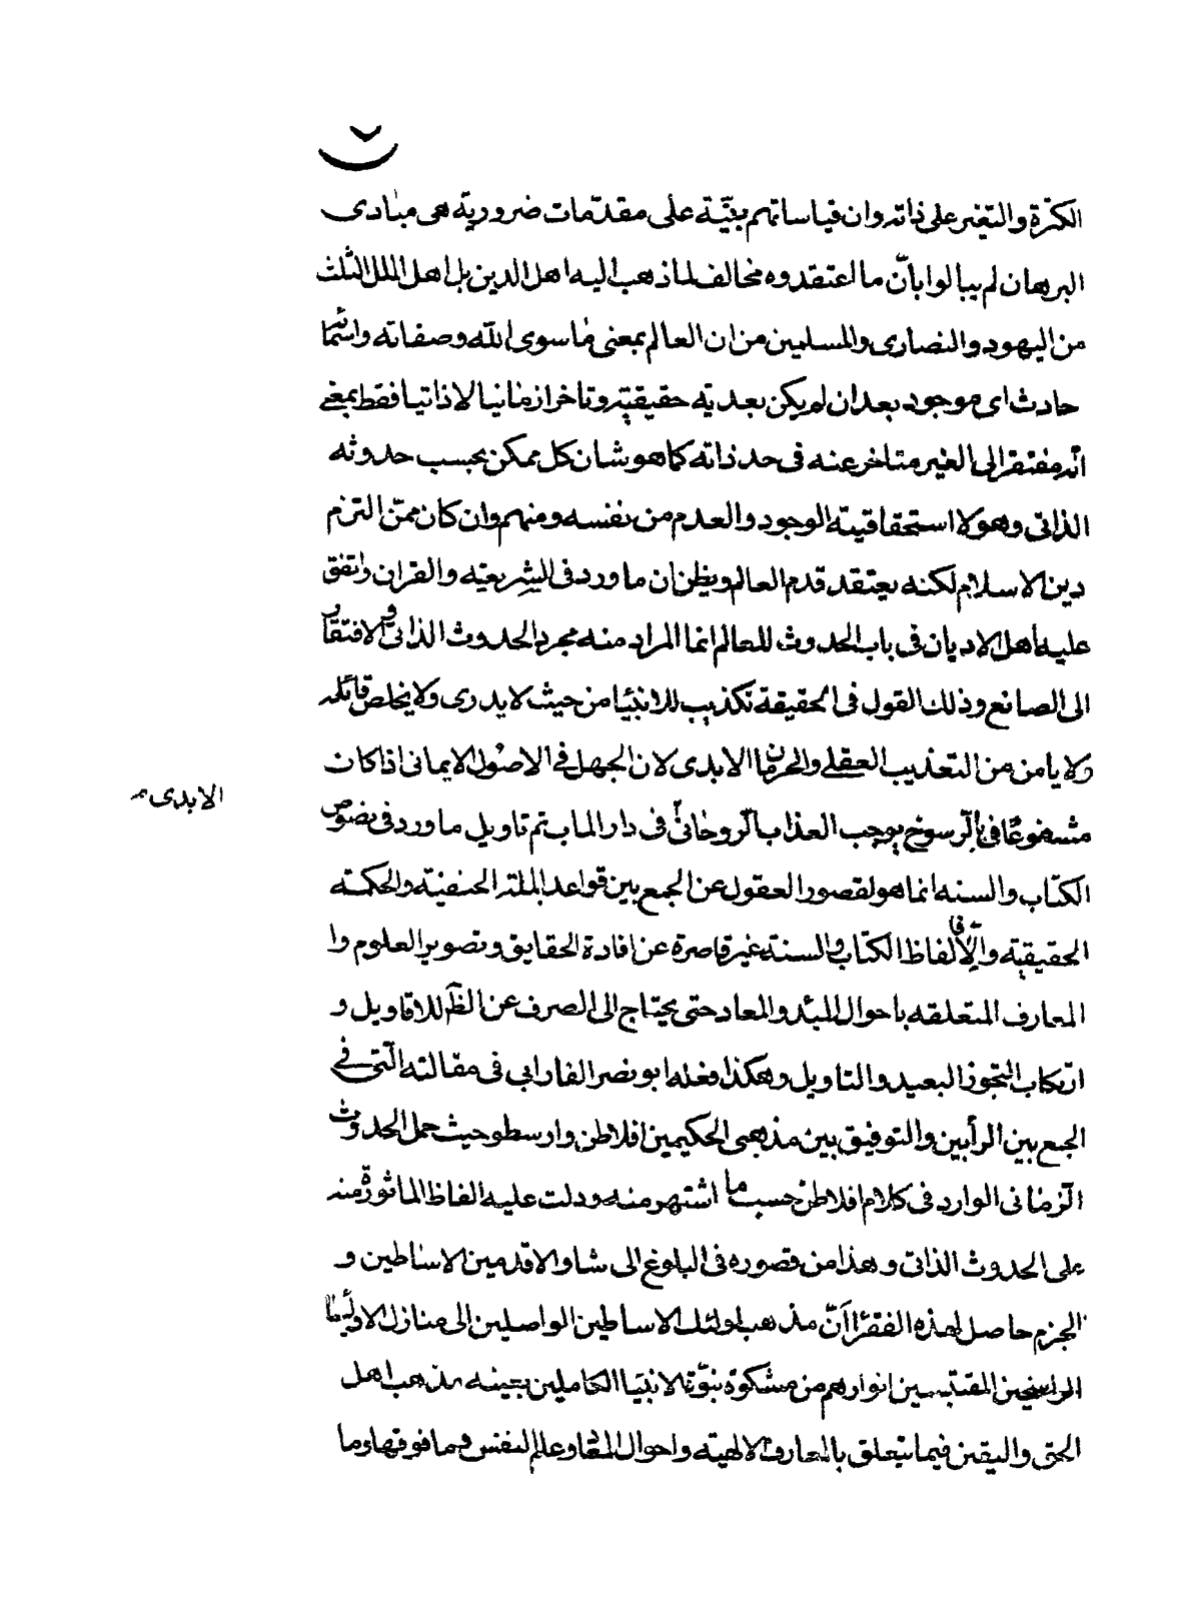 الكثرة والتغير على ذاته وان قياساتهم مبنية على مقدّمات ضرورية هى مبادى
البرهان لم يبالوا بانّ ما اعتقدوه مخالف لما ذهب اليه اهل الدين بل اهل الملل الثلث
من اليهود والنصارى والمسلمين من ان العالم بمعنى ما سوى الله وصفاته واسمائه
حادث اى موجود بعد ان لم يكن بعدية حقيقيته وتاخرا زمانيا لا ذاتيا فقط بمعنى
انه مفتقر الى الغير متاخر عنه فى حد ذاته كما هو شان كل ممكن بحسب حدوثه
الذاتى وهو لا استحقاقيته الوجود والعدم من نفسه ومنهم وان كان ممّن التزم
دين الاسلام لكنه يعتقد قدم العالم ويظن ان ما ورد فى الشريعته والقران واتفق
عليه اهل الاديان فى باب الحدوث للعالم انما المراد منه مجرد الحدوث الذاتى والافتقار
الى الصانع وذلك القول فى الحقيقة تكذيب للانبيا من حيث لا يدرى ولا يخلص قائله
ولا يامن من التعذيب العقلى والحرمان الابدى لان الجهل فى الاصول الايمانى اذا كان
الابدى
مشفوعًا فى الرسوخ يوجب العذاب الروحانى فى دار الماب ثم تاويل ما ورد فى نصوص
الكتاب والسنه انما هو لقصور العقول عن الجمع بين قواعد الملة الحنفيته والحكمته
الحقيقيته والا فى الفاظ الكتاب والسنة غير قاصرة عن افادة الحقايق وتصوير العلوم وا
المعارف المتعلقه باحوال المبدء والمعاد حتى يحتاج الى الصرف عن الظم للاقاويل و
ارتكاب التجوز البعيد والتاويل وهكذا فعله ابو نصر الفارابى فى مقالته الّتى فى
الجمع بين الرأيين والتوفيق بين مذهبى الحكيمين افلاطن وارسطو حيث حمل الحدوث
الزمانى الوارد فى كلام افلاطن حسب ما اشتهر منه ودلت عليه الفاظ الماثورة منه
على الحدوث الذاتى وهذا من قصوره فى البلوغ الى شاو الاقدمين الاساطين و
الجزم حاصل لهذه الفقرا انّ مذهب اولئك الاساطين الواصلين الى منازل الاوليا
الراسخين المقتبسين انوارهم من مشكوة نبوّة الانبيا الكاملين بعينه مذهب اهل
الحق واليقين فيما يتعلق بالمعارف الالهيته واحوال المعاد وعلم النفس وما فوقها وما